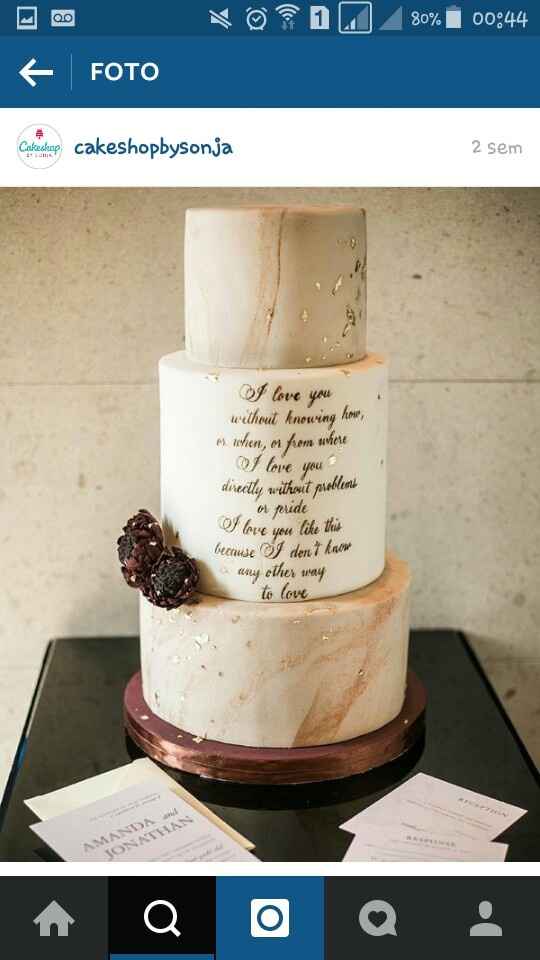 1
80%
00:44
FOTO
Cakeshop
BY SONJA
cakeshopbysonja
2 sem
I love you
without knowing how,
or when, or from where
I love you
directly without problems
or pride
I love you like this
because I don't know
any other way
to love
AMANDA
JONATHAN
RECEPTION
RESPONSE